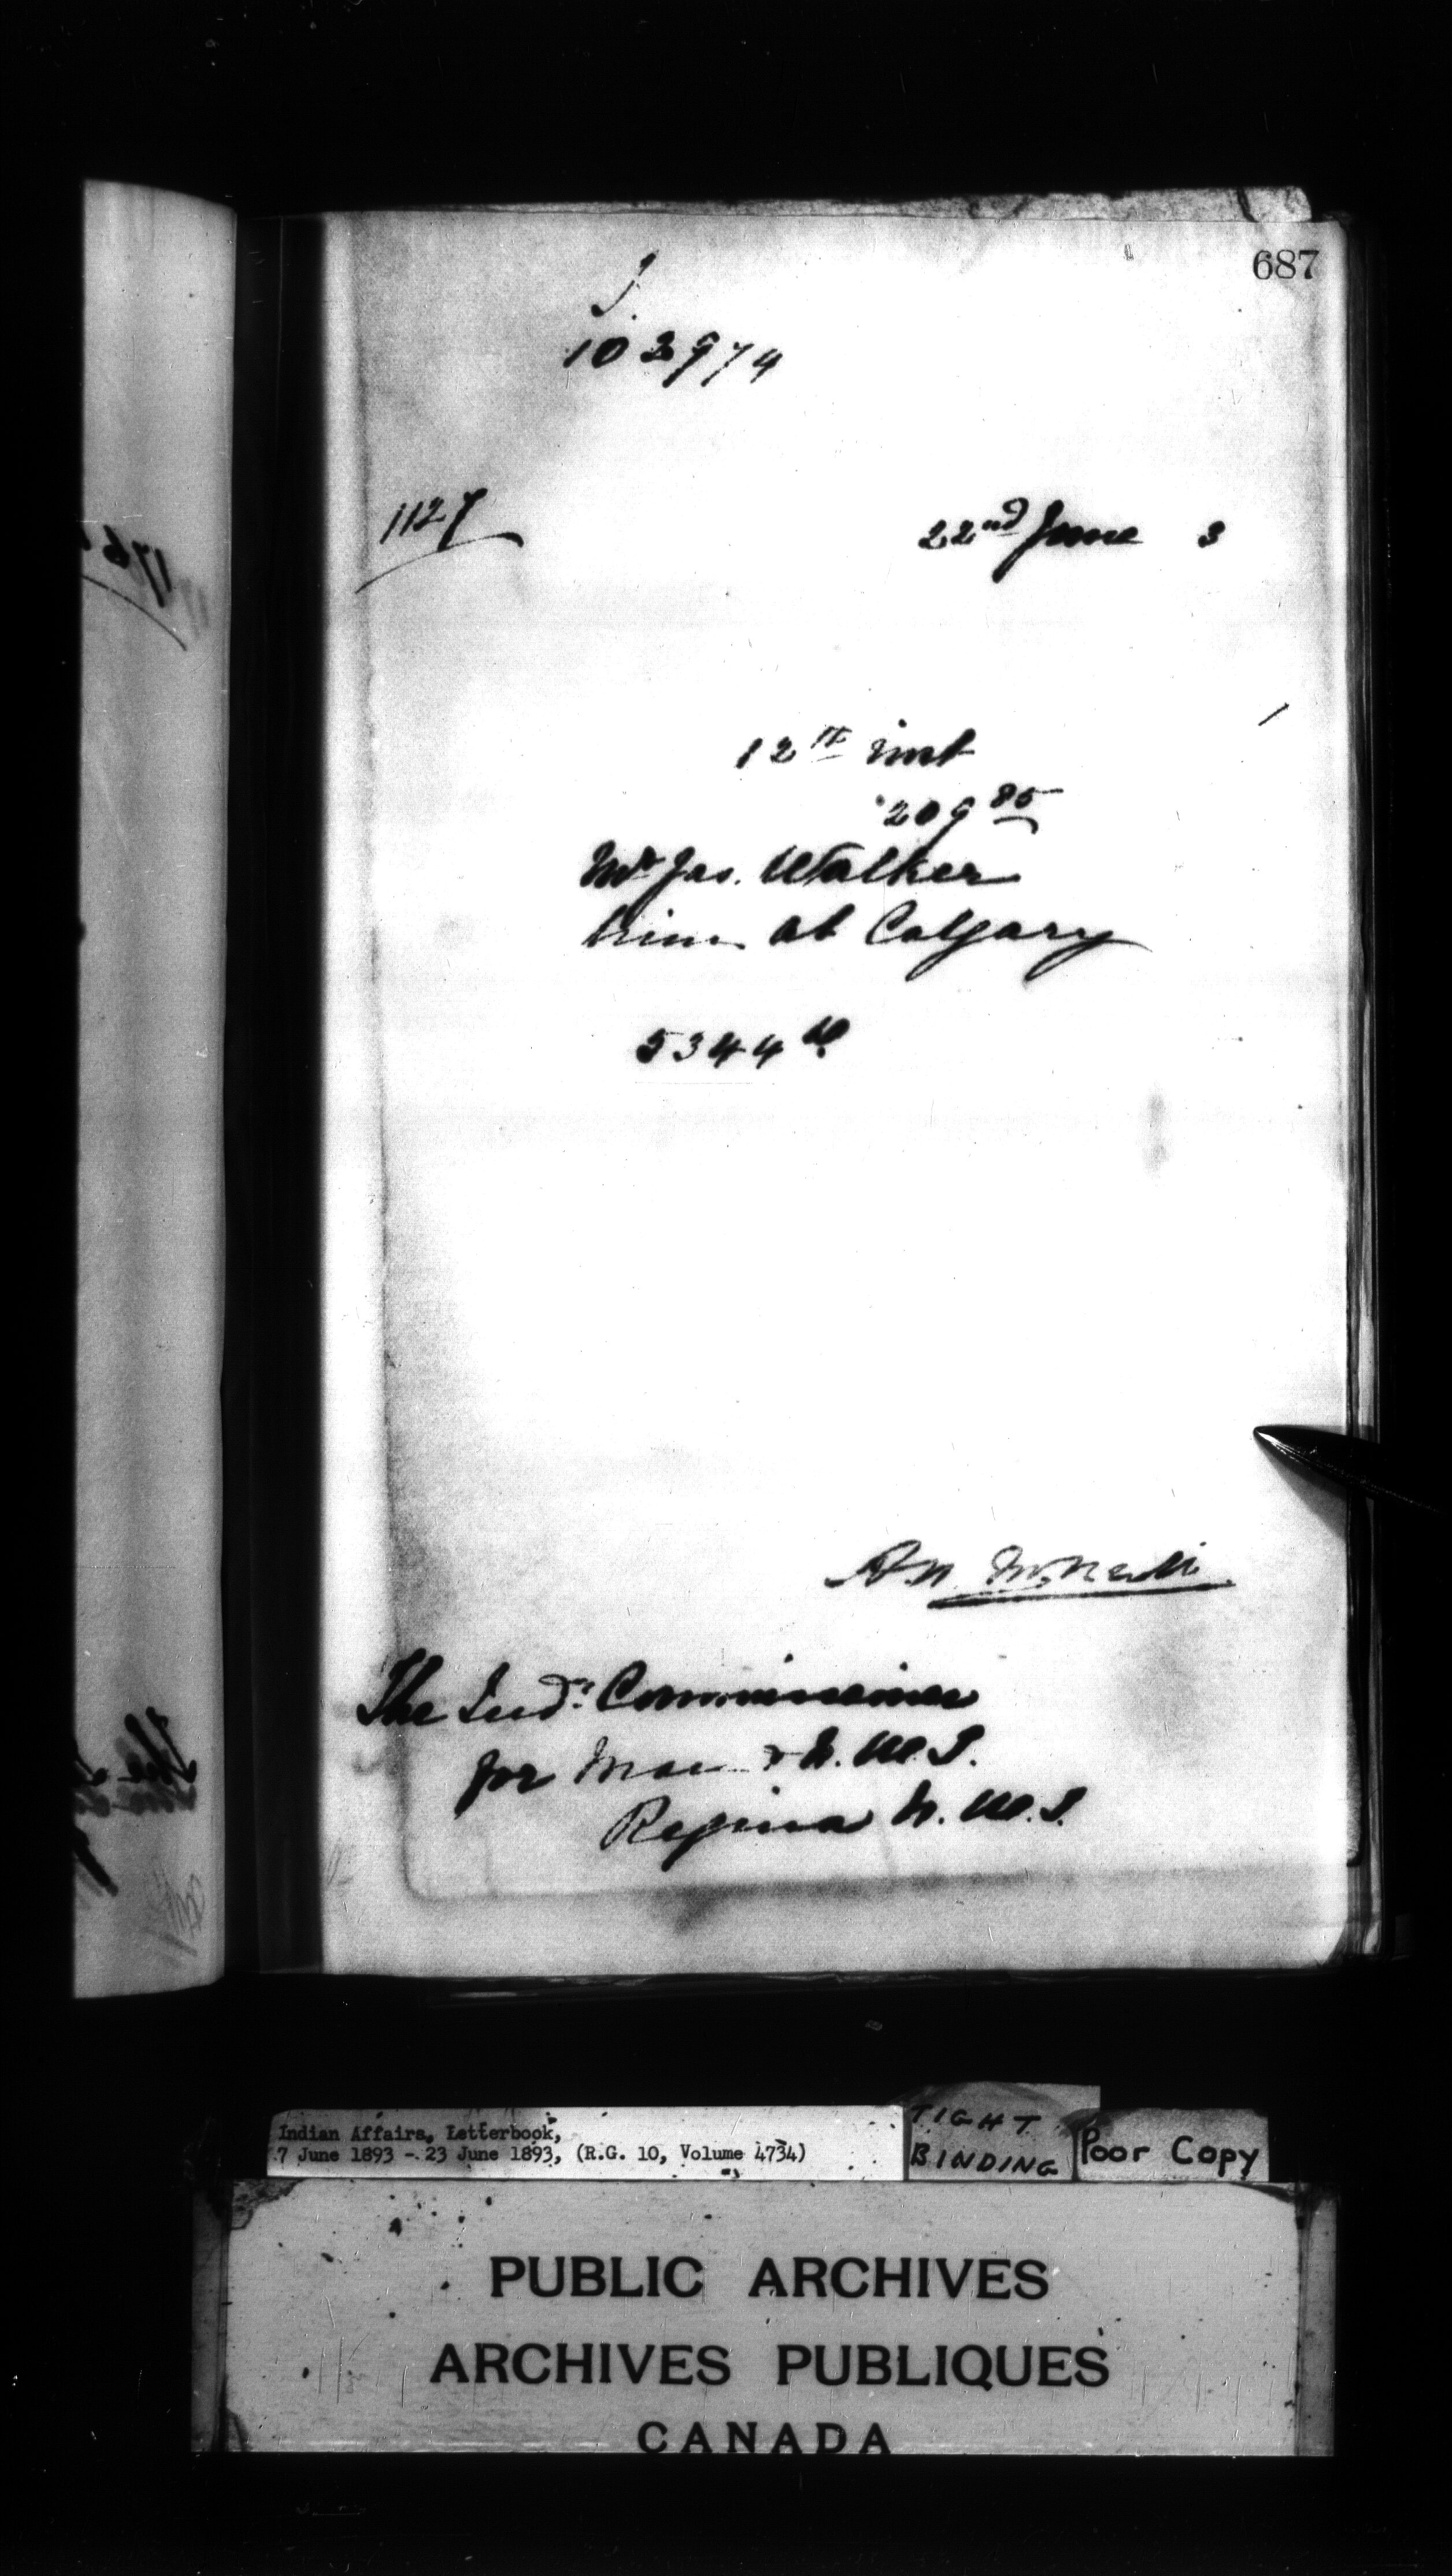 687
J.
102974
1127
22nd June 3
12th inst
209 85
Mr Jas. Walker
him at Calgary
5344
The Ind: Commissioner
for Man & N.W.T.
Regina N.W.T.
Indian Affairs, Letterbook,
7 June 1893 - 23 June 1893, (R.G. 10, Volume 4734)
TIGHT
BINDING
Poor Copy
PUBLIC ARCHIVES
ARCHIVES PUBLIQUES
CANADA